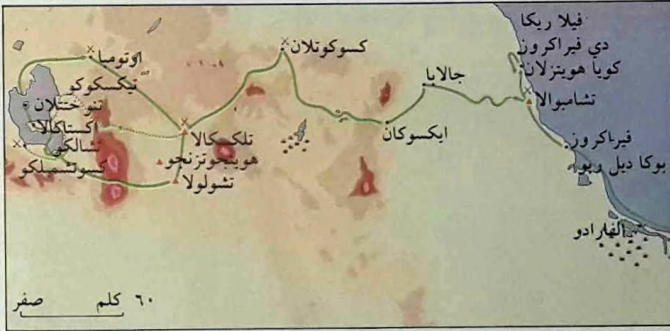 فيلا ريكا
دي فيراكروز
كويا هويتزلان
تشامبوالا
فيراكروز
بوكا ديل ريو
الفارادو
جالابا
ايكسوكان
كسوكوتلان
اوتومبا
تيكسكوكو
تنوختتلان
اكستاكالا
تشالكو
كسوتشميلكو
تلكسكالا
هويينجوتزنجو
تشولولا
صفر كلم ٦٠